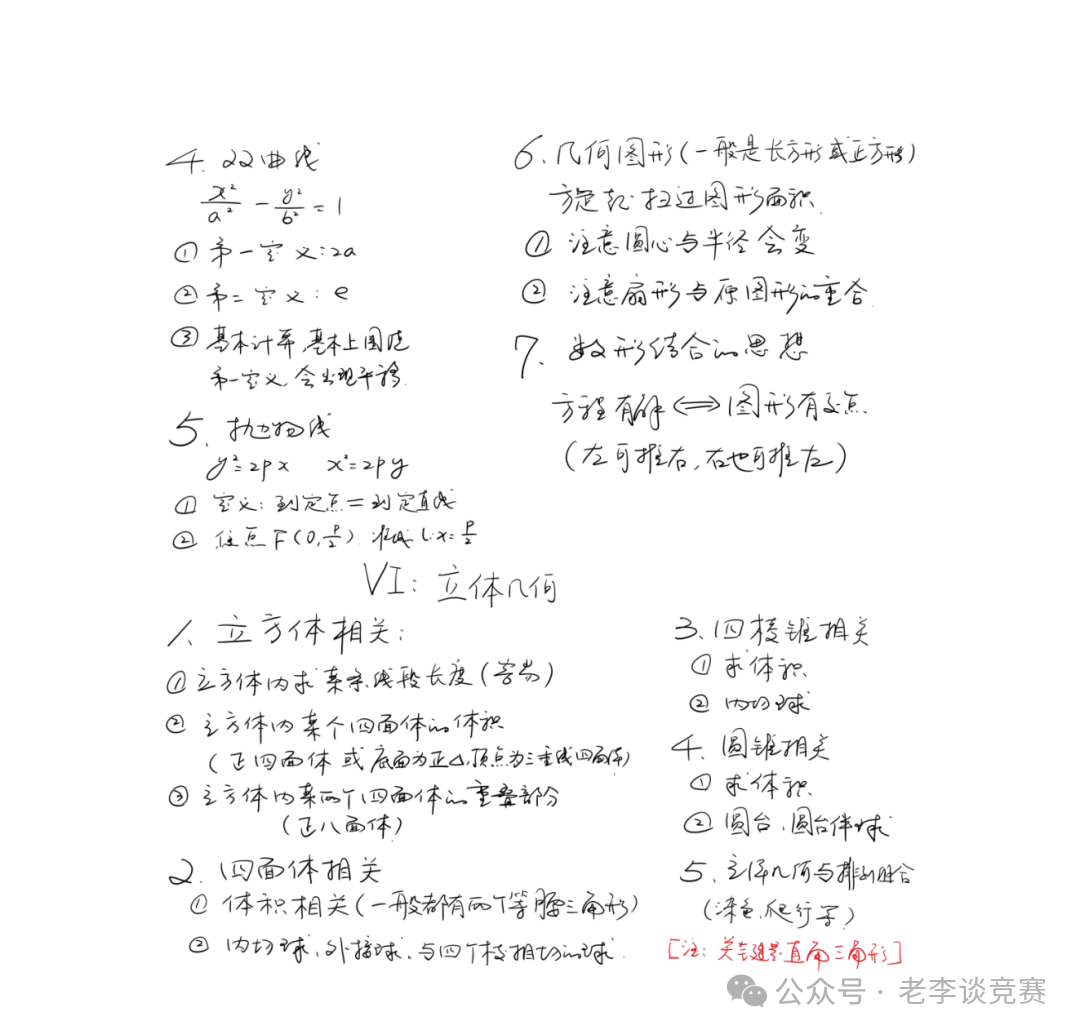 4. 双曲线
x²/a² - y²/b² = 1
① 第一定义:2a
② 第二定义:e
③ 基本计算,基本上围绕
第一定义,会出现平移.
5. 抛物线
y²=2px x²=2py
① 定义:到定点=到定直线
② 焦点F(0,p/2) 准线l:x=p/2
6. 几何图形(一般是长方形或正方形)
旋转扫过图形面积.
① 注意圆心与半径会变
② 注意扇形与原图形的重合.
7. 数形结合的思想
方程有解⟺图形有交点.
(左可推右,右也可推左)
VI: 立体几何
1. 立方体相关:
① 立方体内求某条线段长度(容易)
② 立方体内某个四面体的体积
(正四面体或底面为正△,顶点为三垂线四面体)
③ 立方体内某两个四面体的重叠部分
(正八面体)
2. 四面体相关
① 体积相关(一般都有两个等腰三角形)
② 内切球,外接球,与四个棱相切的球.
3. 四棱锥相关
① 求体积
② 内切球
4. 圆锥相关
① 求体积
② 圆台,圆台伴球
5. 立体几何与排列组合
(染色,爬行等)
[注:关键是直角三角形]
公众号·老李谈竞赛